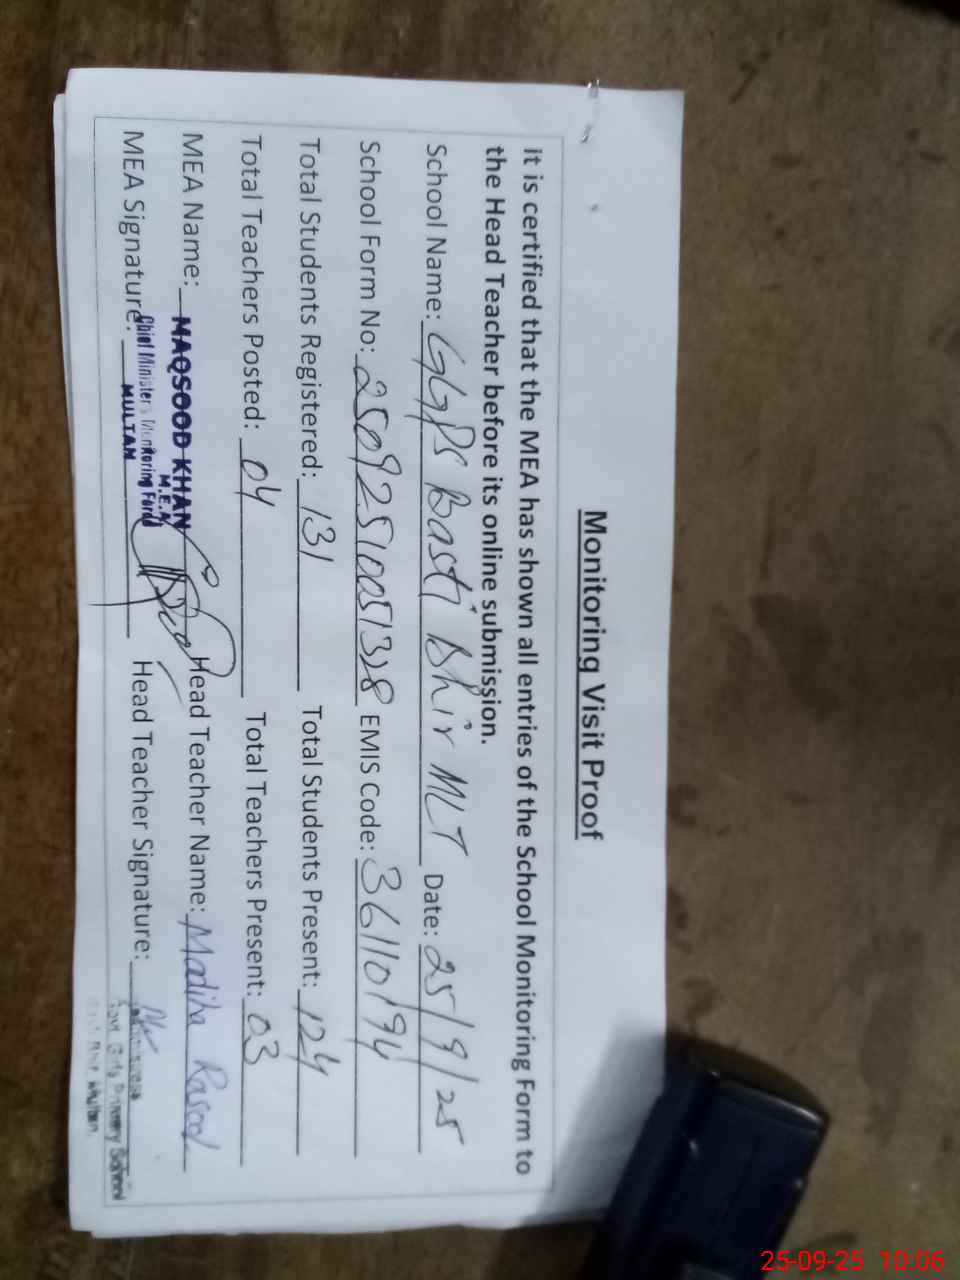 Monitoring Visit Proof
It is certified that the MEA has shown all entries of the School Monitoring Form to
the Head Teacher before its online submission.
School Name: GGPS Basti Bhir MLT Date: 25/9/25
School Form No: 25092510051328 EMIS Code: 36110194
Total Students Registered: 131 Total Students Present: 124
Total Teachers Posted: 04 Total Teachers Present: 03
MEA Name: MAQSOOD KHAN Head Teacher Name: Madiha Rasool
M.E.A
MEA Signature: Chief Minister's Monitoring Force Head Teacher Signature:
MULTAN
Headmistress
Govt. Girls Primary School
Basti Bhir Multan.
25-09-25 10:06